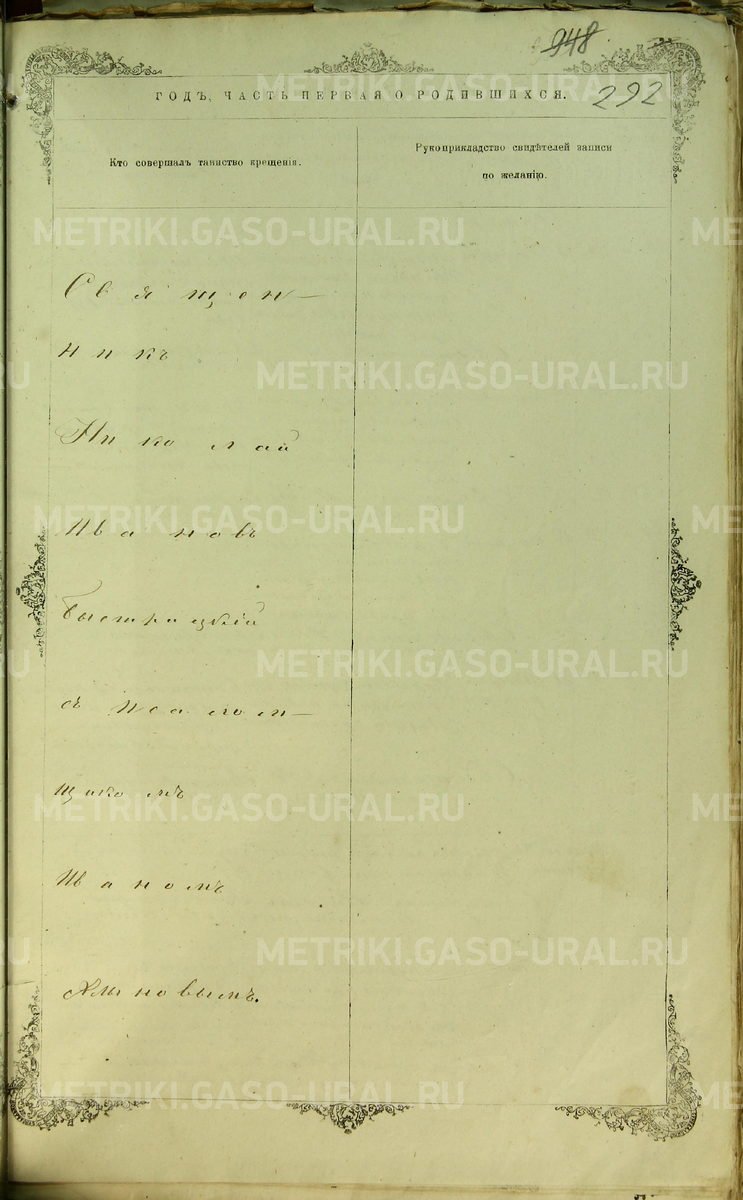 948
292
ГОДЪ, ЧАСТЬ ПЕРВАЯ О РОДИВШИХСЯ.
Кто совершалъ таинство крещенія.
Рукоприкладство свидѣтелей записи
по желанію.
Священ-
никъ
Николай
Ивановъ
Быстрицкій
съ псалом-
щикомъ
Иваномъ
METRIKI.GASO-URAL.RU